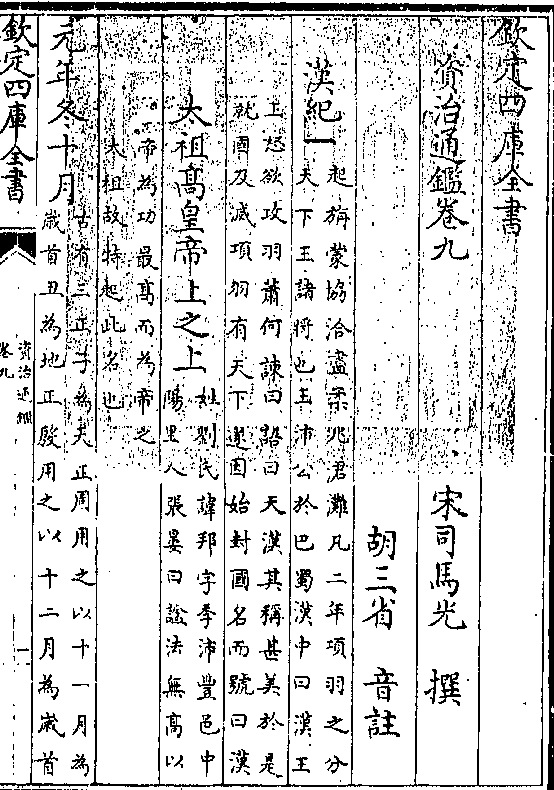 欽定四庫全書
資治通鑑卷九
宋司馬光 撰
胡三省 音註
漢紀一
起旃蒙協洽盡柔兆涒灘凡二年項羽之分
天下王諸將也王沛公於巴蜀漢中曰漢王
上怒欲攻羽蕭何諫曰語曰天漢其稱甚美於是
就國及滅項羽有天下遂因始封國名而號曰漢
太祖髙皇帝上之上
姓劉氏諱邦字季沛豐邑中
陽里人張晏曰諡法無髙以
帝為功最髙而為帝之
太祖故特起此名也
元年冬十月
古有三正子為天正周用之以十一月為
歲首丑為地正殷用之以十二月為歲首
欽定四庫全書
資治通鑑
卷九
一